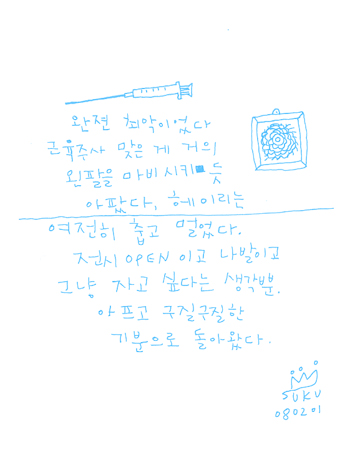 완전 최악이었다
근육주사 맞은 게 거의
왼팔을 마비시키 듯
아팠다, 헤이리는
여전히 춥고 멀었다.
전시 OPEN 이고 나발이고
그냥 자고 싶다는 생각뿐.
아프고 구질구질한
기분으로 돌아왔다.
SUKU
080201